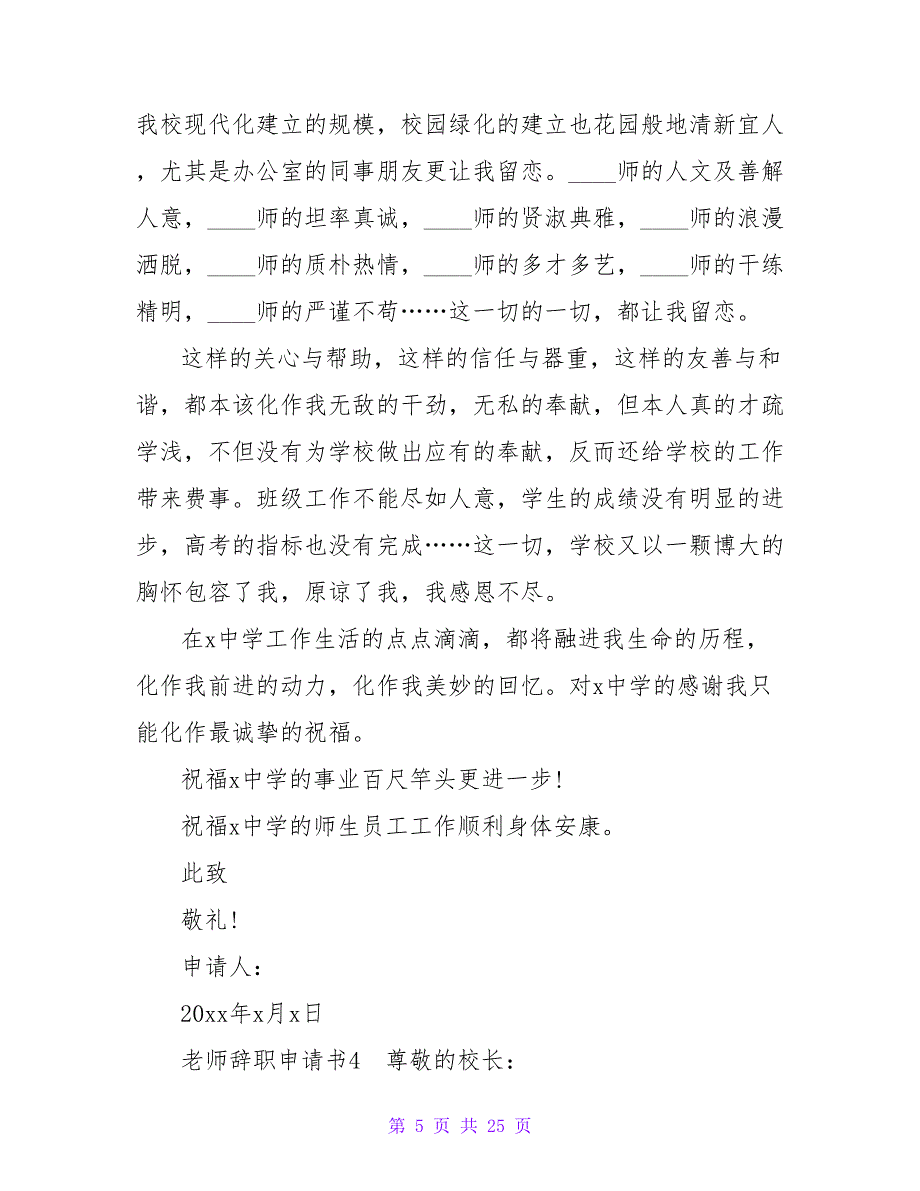 我校现代化建立的规模，校园绿化的建立也花园般地清新宜人
，尤其是办公室的同事朋友更让我留恋。____师的人文及善解
人意，____师的坦率真诚，____师的贤淑典雅，____师的浪漫
洒脱，____师的质朴热情，____师的多才多艺，____师的干练
精明，____师的严谨不苟……这一切的一切，都让我留恋。
这样的关心与帮助，这样的信任与器重，这样的友善与和
谐，都本该化作我无敌的干劲，无私的奉献，但本人真的才疏
学浅，不但没有为学校做出应有的奉献，反而还给学校的工作
带来费事。班级工作不能尽如人意，学生的成绩没有明显的进
步，高考的指标也没有完成……这一切，学校又以一颗博大的
胸怀包容了我，原谅了我，我感恩不尽。
在x中学工作生活的点点滴滴，都将融进我生命的历程，
化作我前进的动力，化作我美妙的回忆。对x中学的感谢我只
能化作最诚挚的祝福。
祝福x中学的事业百尺竿头更进一步!
祝福x中学的师生员工工作顺利身体安康。
此致
敬礼!
申请人：
20xx年x月x日
老师辞职申请书4　尊敬的校长：
第 5 页 共 25 页